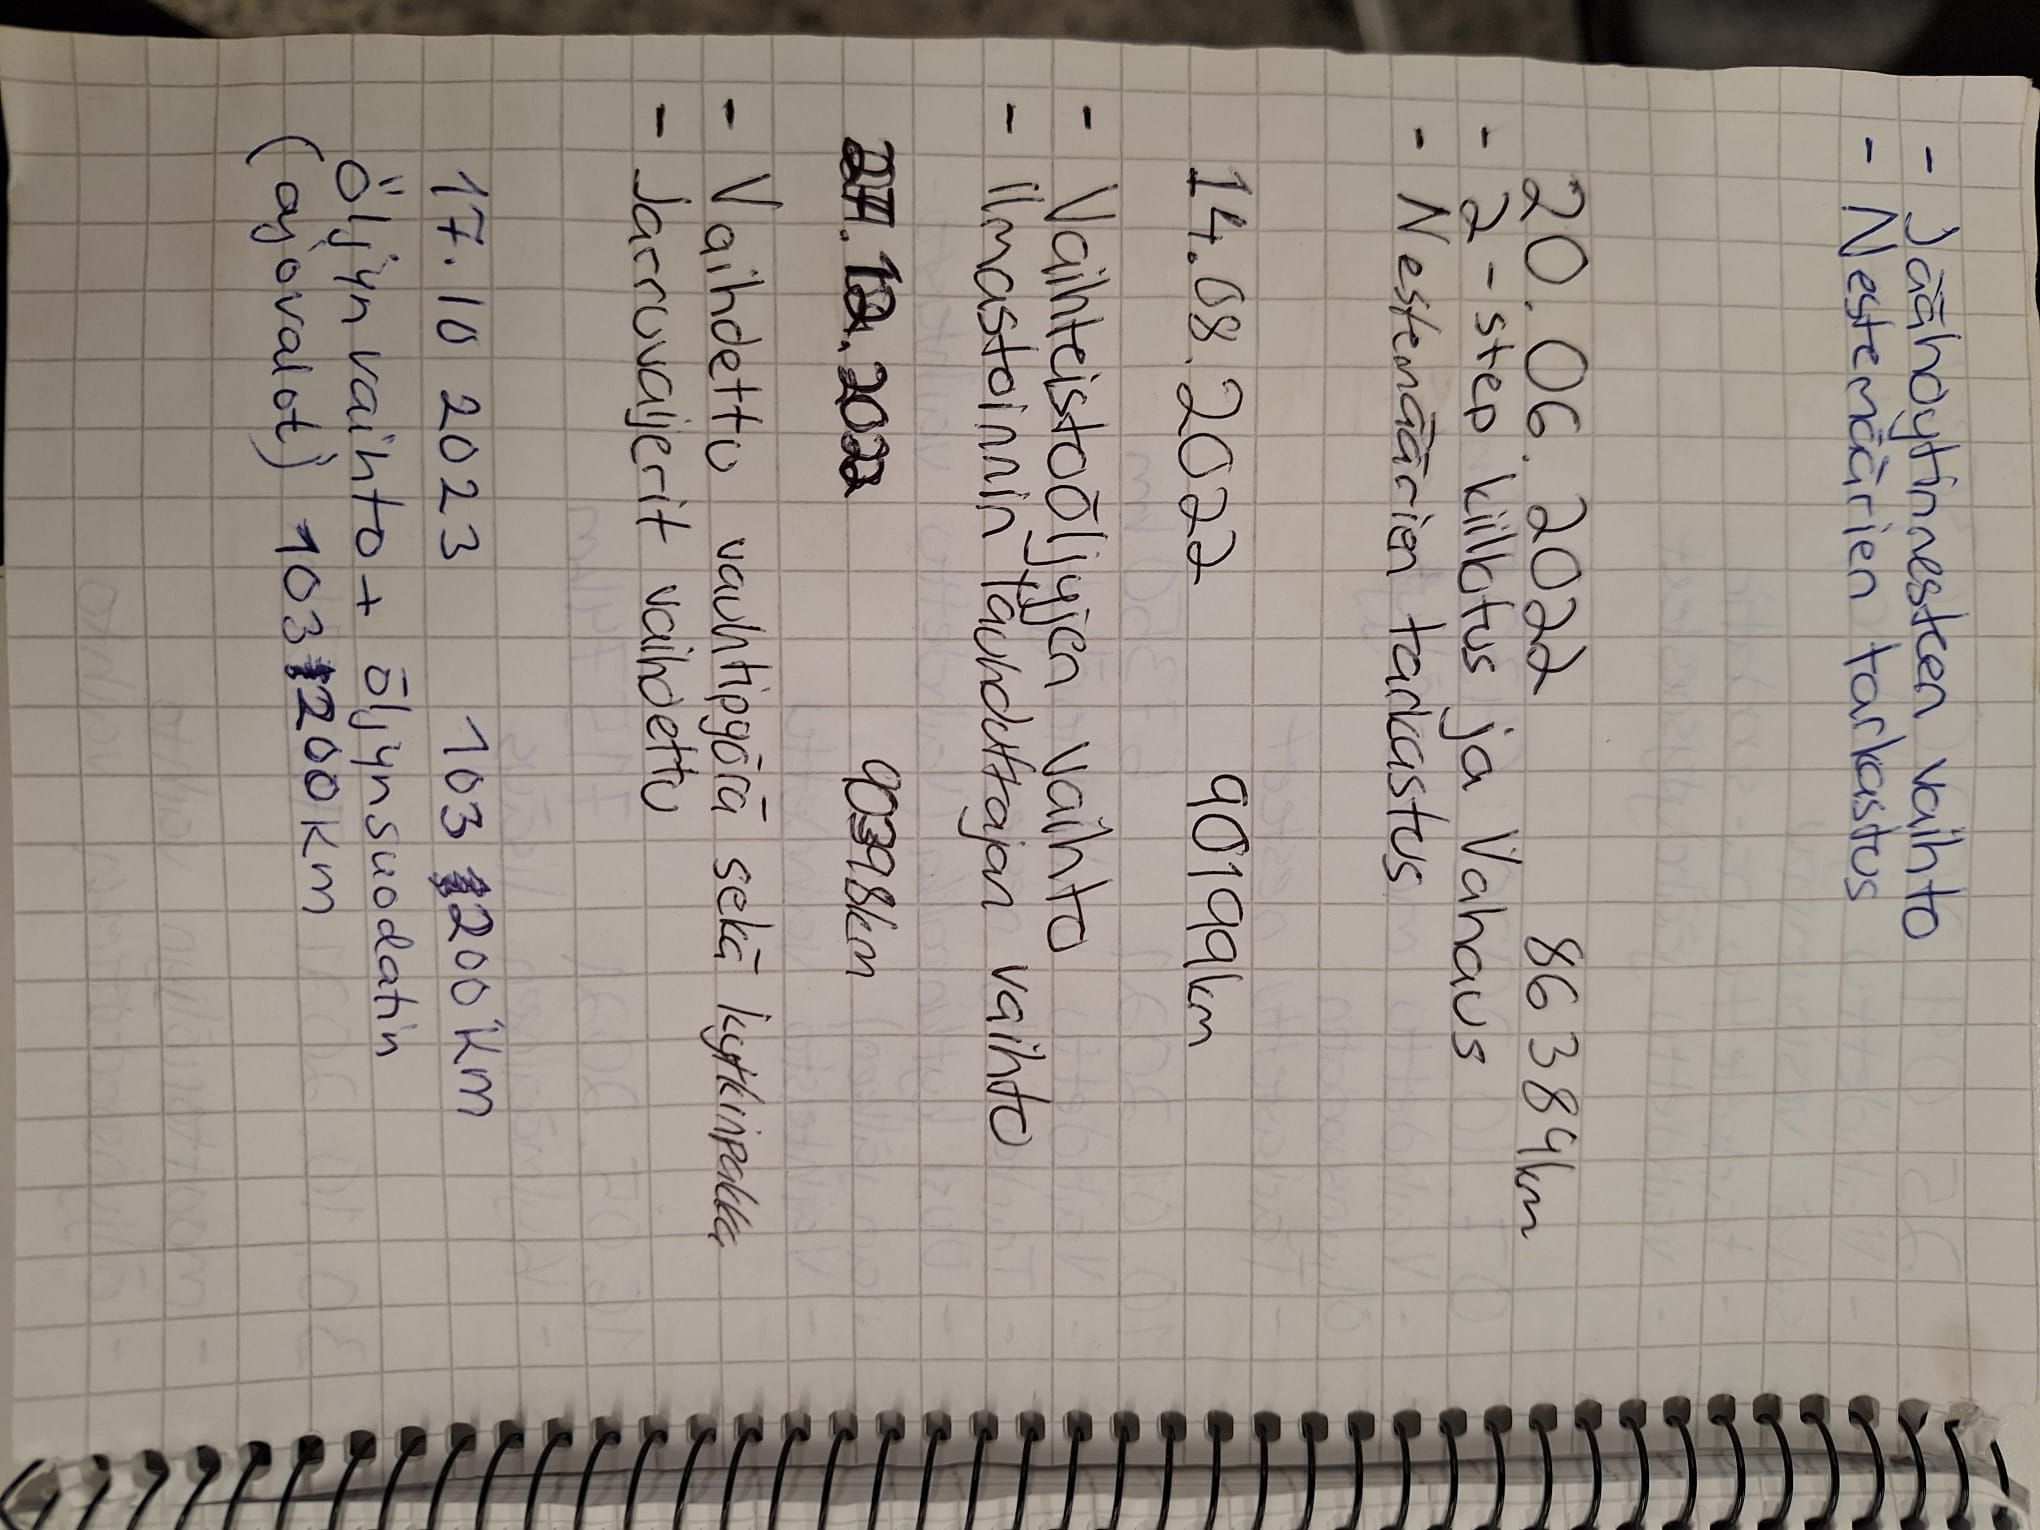 - Jäähdytinnesteen vaihto
- Nestemäärien tarkastus
20.06.2022 86384km
- 2-step kiillotus ja Vahaus
- Nestemäärien tarkastus
14.08.2022 90199km
- Vaihteistoöljyjen vaihto
- Ilmastoinnin lauhduttajan vaihto
.12.2022 90398km
- Vaihdettu vauhtipyörä sekä kytkinpakka
- Jarruvaijerit vaihdettu
17.10 2023 103 200 km
Öljyn vaihto + öljynsuodatin
(ajovalot) 103 200 km